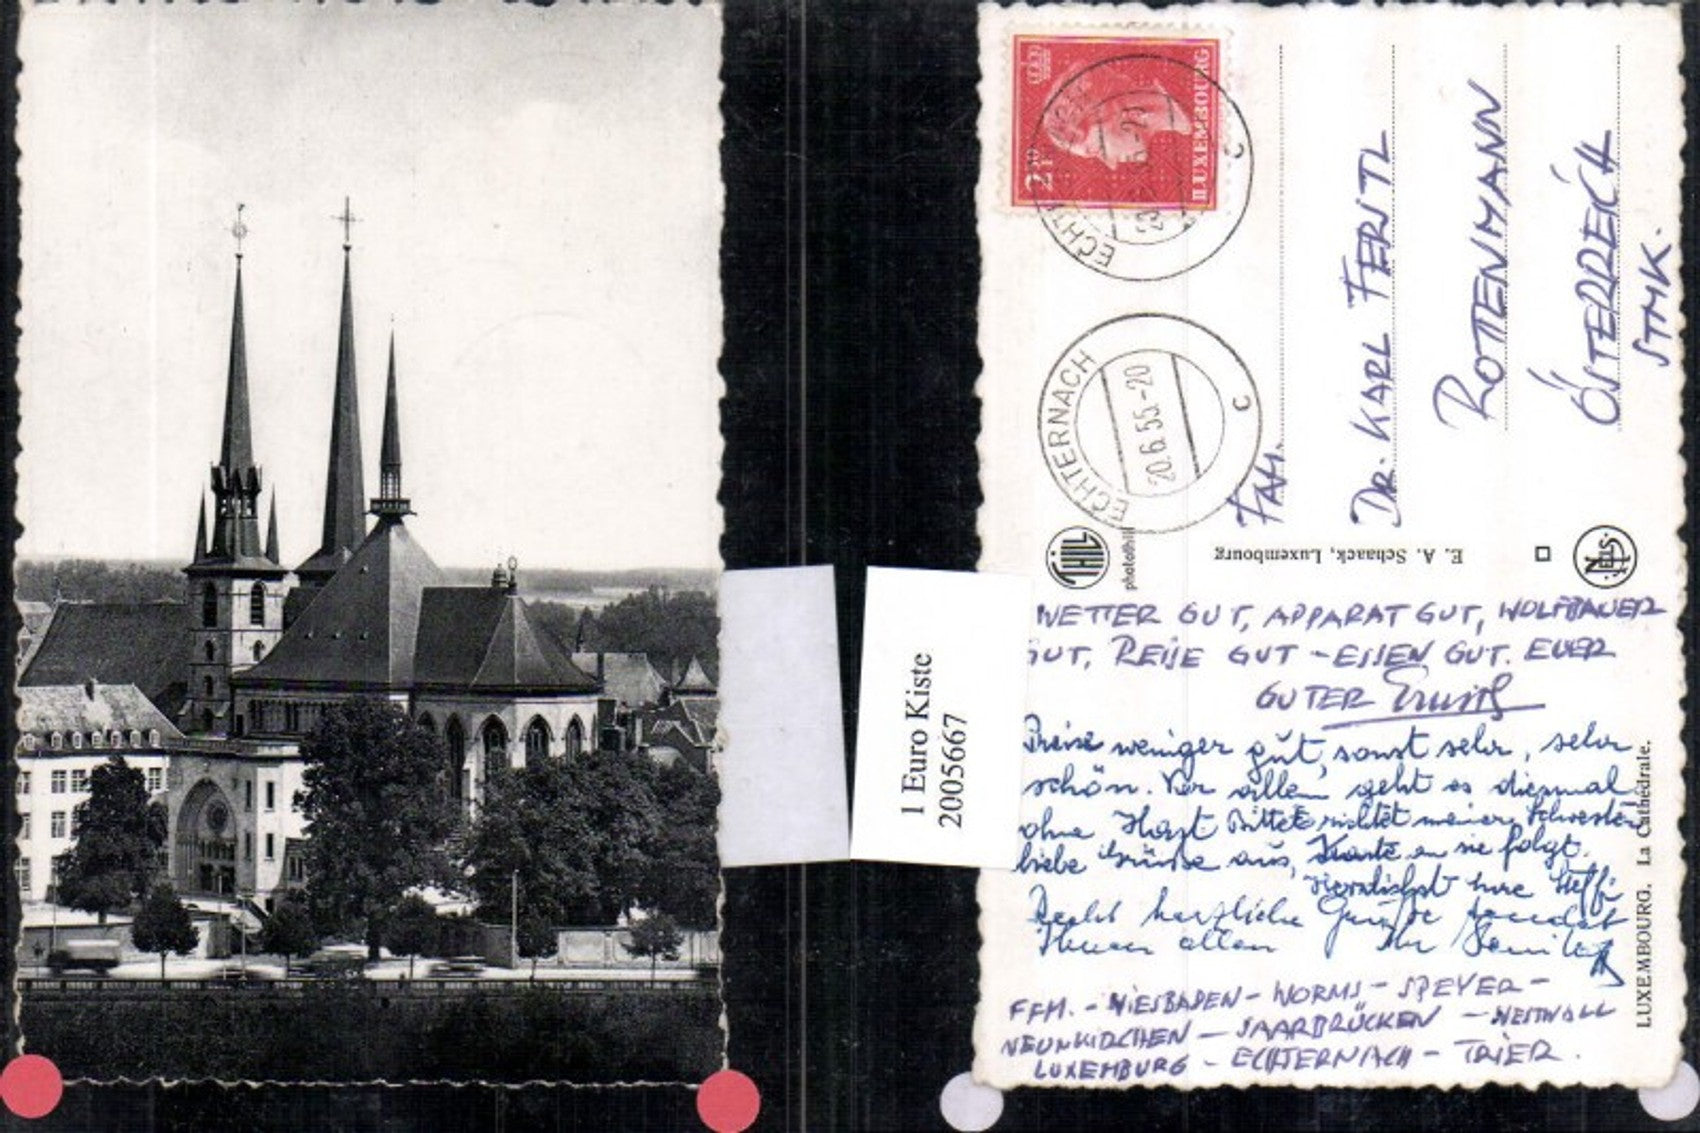 1 Euro Kiste
2005667
LUXEMBOURG
2F50
ECHTERNACH
20.6.55.-20
C
ECHTERNACH
20.6.55.-20
C
FAM.
DR. KARL FERSTL
ROTTENMANN
ÖSTERREICH
STMK.
THILL
photothill
E. A. Schaack, Luxembourg
NELS
WETTER GUT, APPARAT GUT, WOLFBAUER
GUT, REISE GUT - ESSEN GUT. EUER
GUTER
Reise weniger gut, sonst sehr, sehr
schön. Vor allem geht es diesmal
ohne Hast. Bitte richtet meiner Schwester
liebe Grüsse aus, Karte an sie folgt.
Herzlichst Steffi
Recht herzliche Grüße sendet
Ihnen allen Ihr
FFM. - WIESBADEN - WORMS - SPEYER -
NEUNKIRCHEN - SAARBRÜCKEN - WESTWALL
LUXEMBURG - ECHTERNACH - TRIER.
LUXEMBOURG. La Cathédrale.